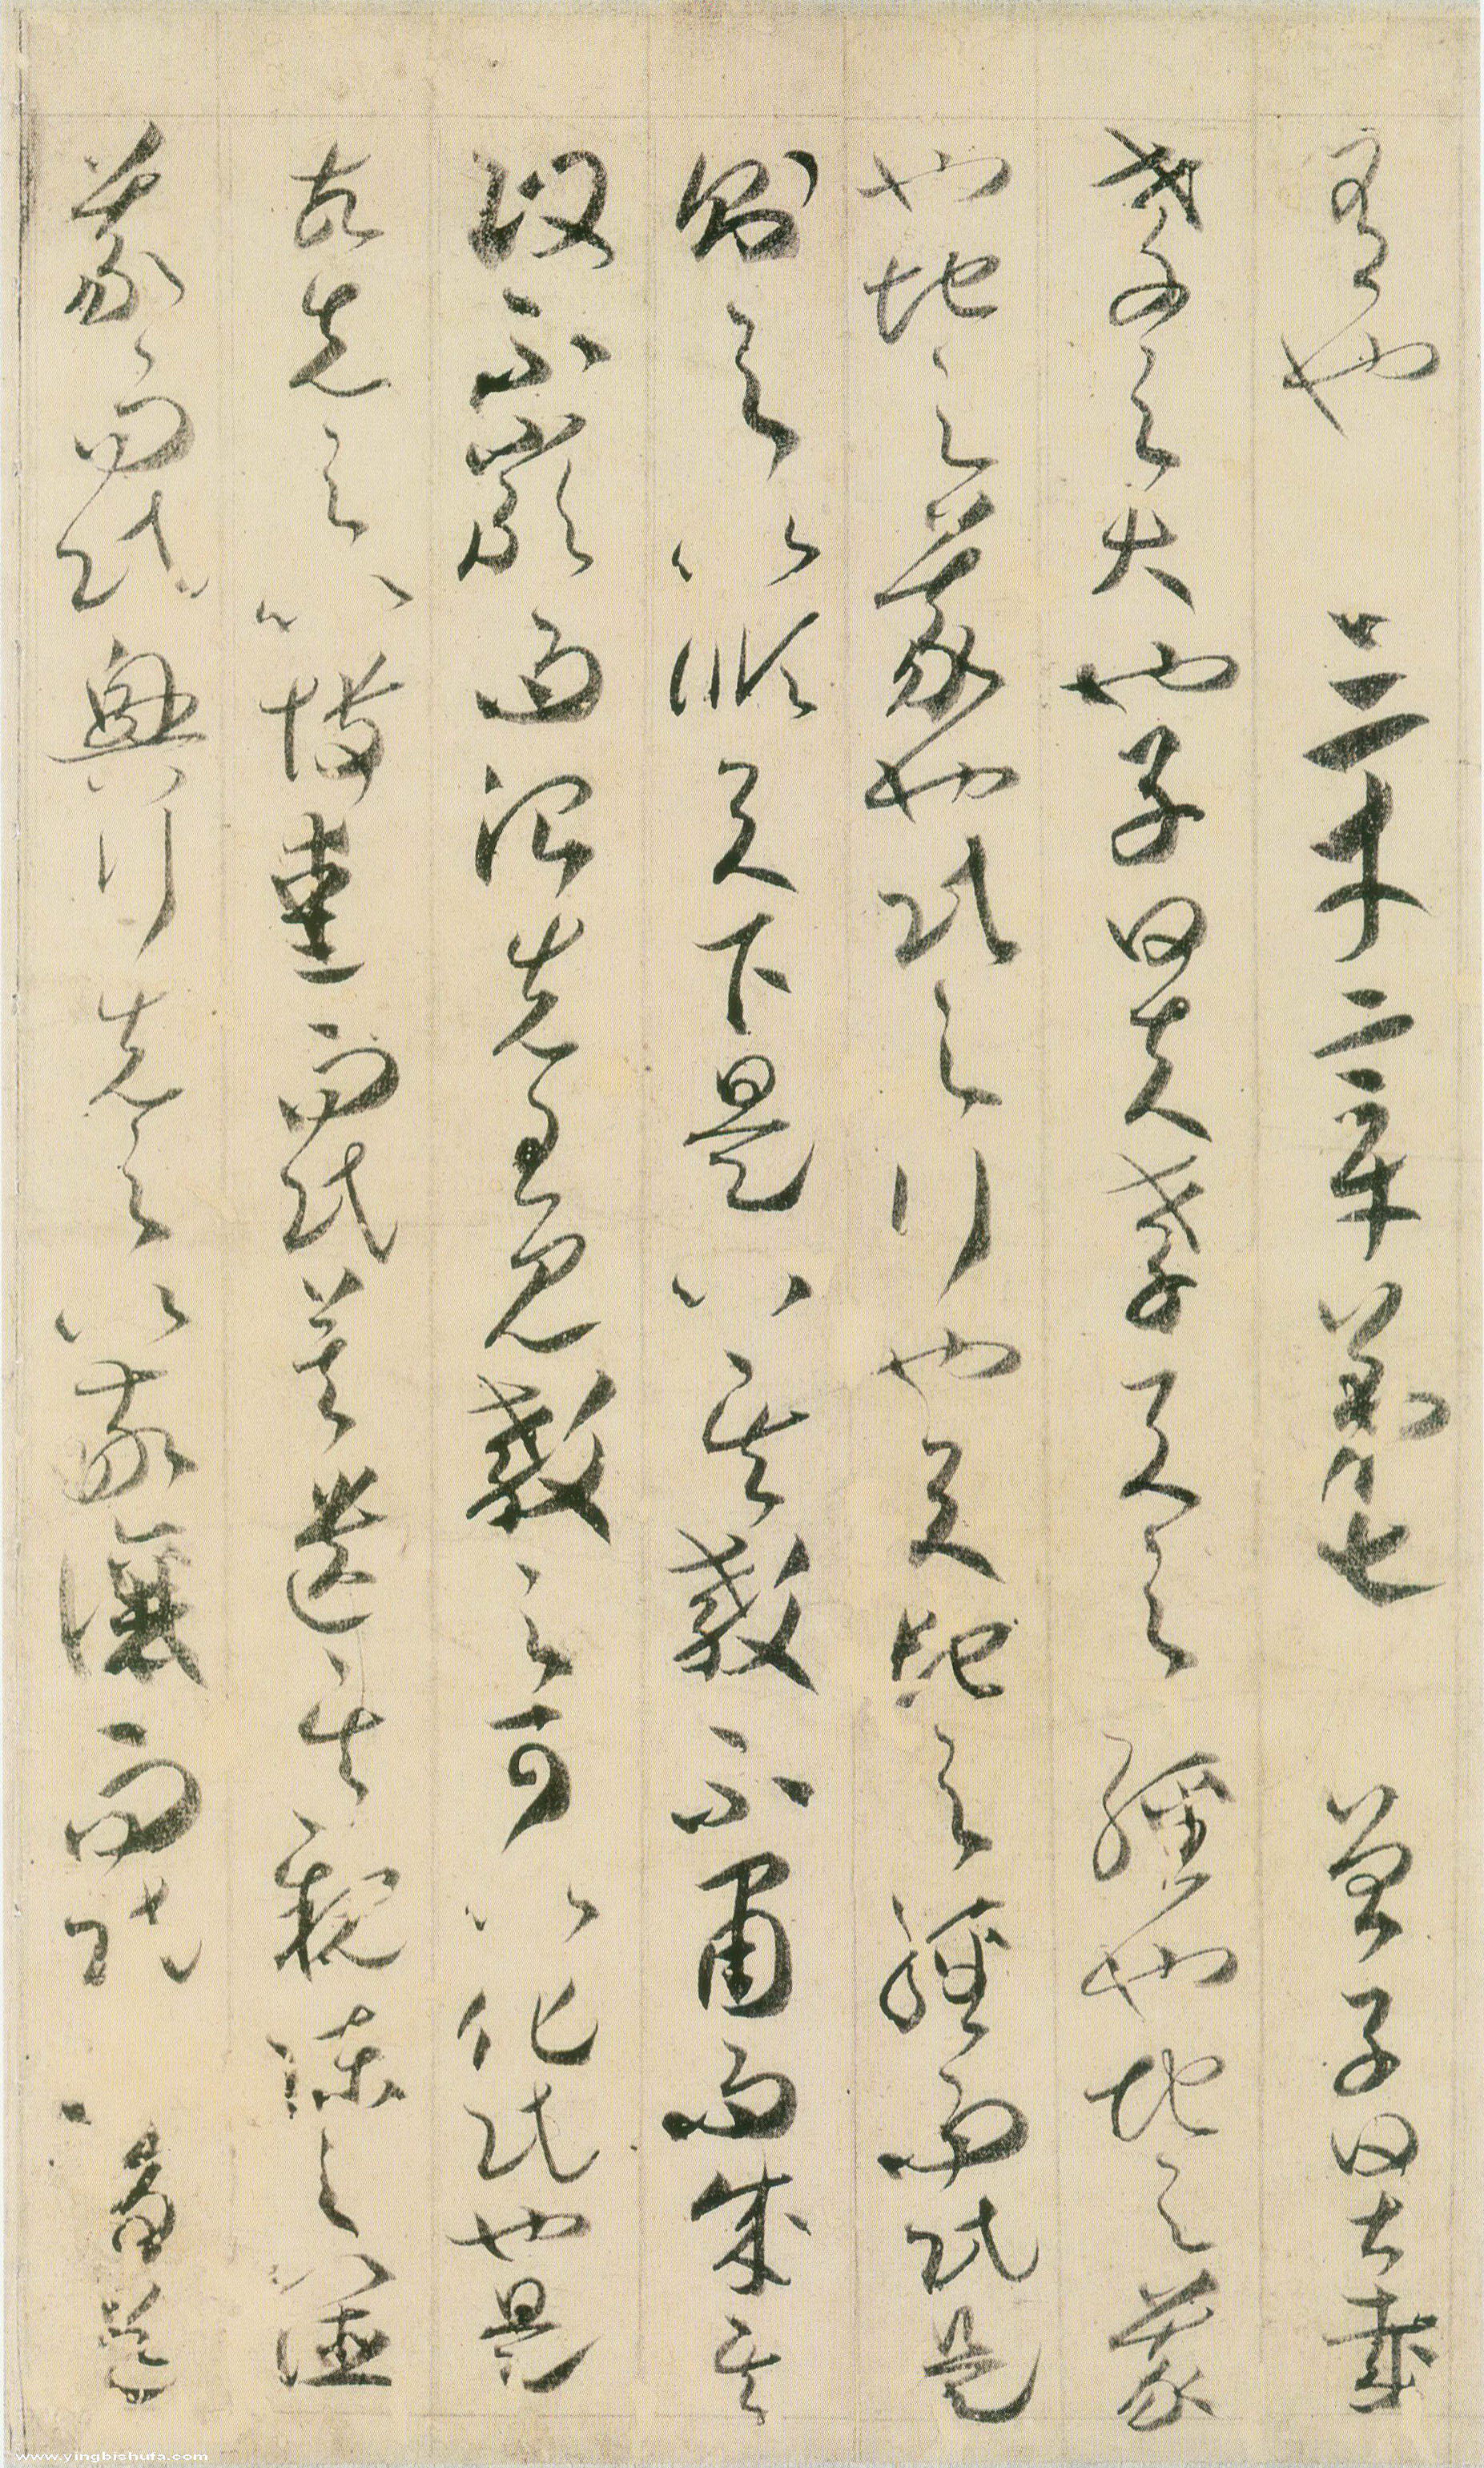 有也 三才章第七 曾子曰甚哉
孝之大也子曰夫孝天之經也地之義
也地之義也民之行也天地之經而民是
則之以順天下是以其教不肅而成其
政不嚴而治先王見教之可以化民也是
故先之以博愛而民莫遺其親陳之以德
義而民興行先之以敬讓而民
www.yingbishufa.com